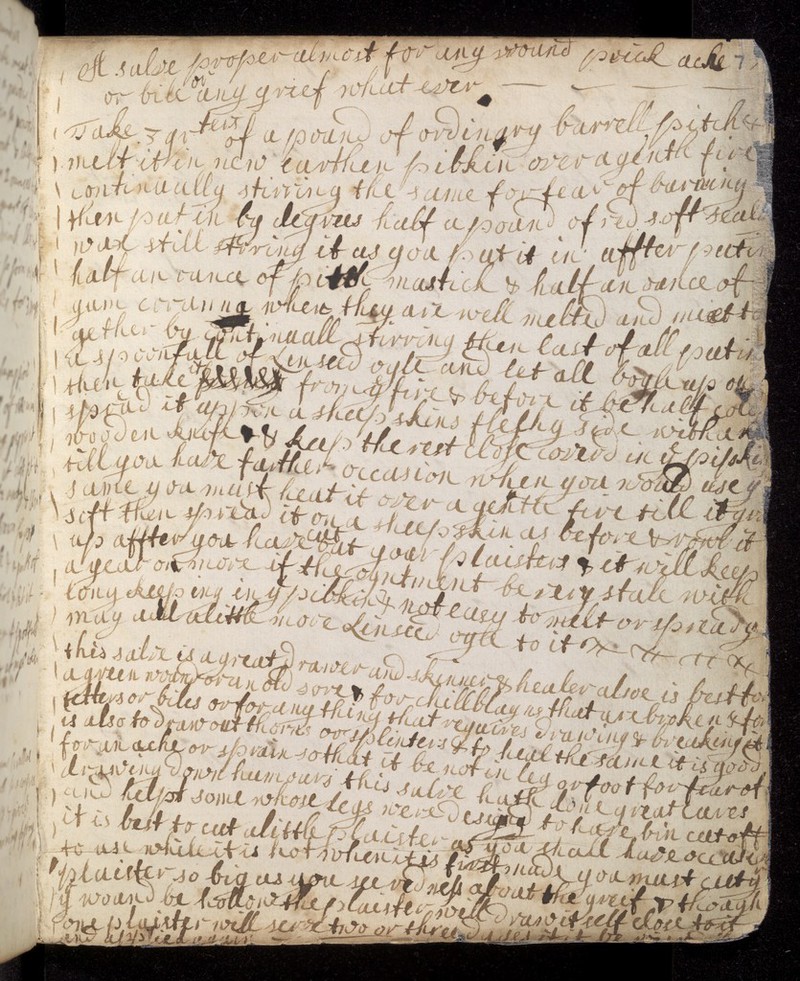 A salve proper almost for any wound prick ache 7
or bile or any grief what ever
Take 3 qrters of a pound of ordinary barrell pitch &
melt it in new earthen pibkin over a gentle fire
continually stirring the same for fear of burning
then put in by degrees half a pound of red soft seal
wax still stiring it as you put it in affter put in
half an ounce of mastick & half an ounce of
gum when they are well melted and mixt to
gether by continuall stirring then last of all put in
a spoonfull of Linseed oyle and let all boyle up on
then take it from ye fire & before it be half cold
spread it upon a sheep skins fleshy side with a
wooden knife & keep the rest close coverd in ye pipkin
till you have farther occasion when you would use ye
same you must heat it over a gentle fire till it gro
soft then spread it on a sheepskin as before & rowl it
up affter you have cut out your plaisters & it will keep
a year or more if the oyntment be very stale with
long keeping in ye pibkin & not easy to melt or spread yo
may add a little more Linseed oyle to it
this salve is a great drawer and skinner & healer alsoe is best for
a green wound or an old sore & for chillblayns that are broken & for
tetters or biles or for any thing that requires drawing & breaking it
is also to draw out thorns or splinters & to heal the same it is good
for an ache or sprain so that it be not in leg or foot for fear of
drawing down humours this salve hath done great cures
and helpt some whose legs were to have bin cut off
it is best to cut a little plaister as you shall have occasion
to use while it is hot when it is first made you must cut ye
plaister so big as you see redness about the greif & though
ye wound be hollow the plaister will draw it self close to it
one plaister will serve two or three
and applied again